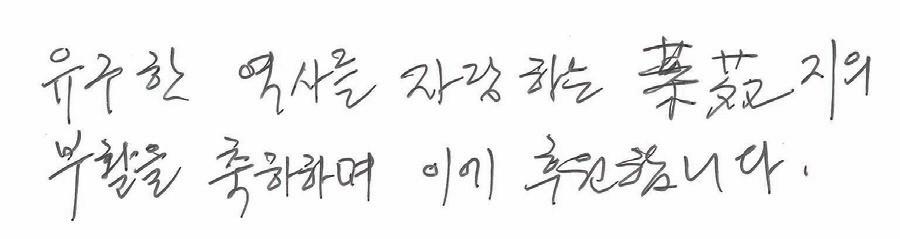 유구한 역사를 자랑하는 지의
부활을 축하하며 이에 후원합니다.